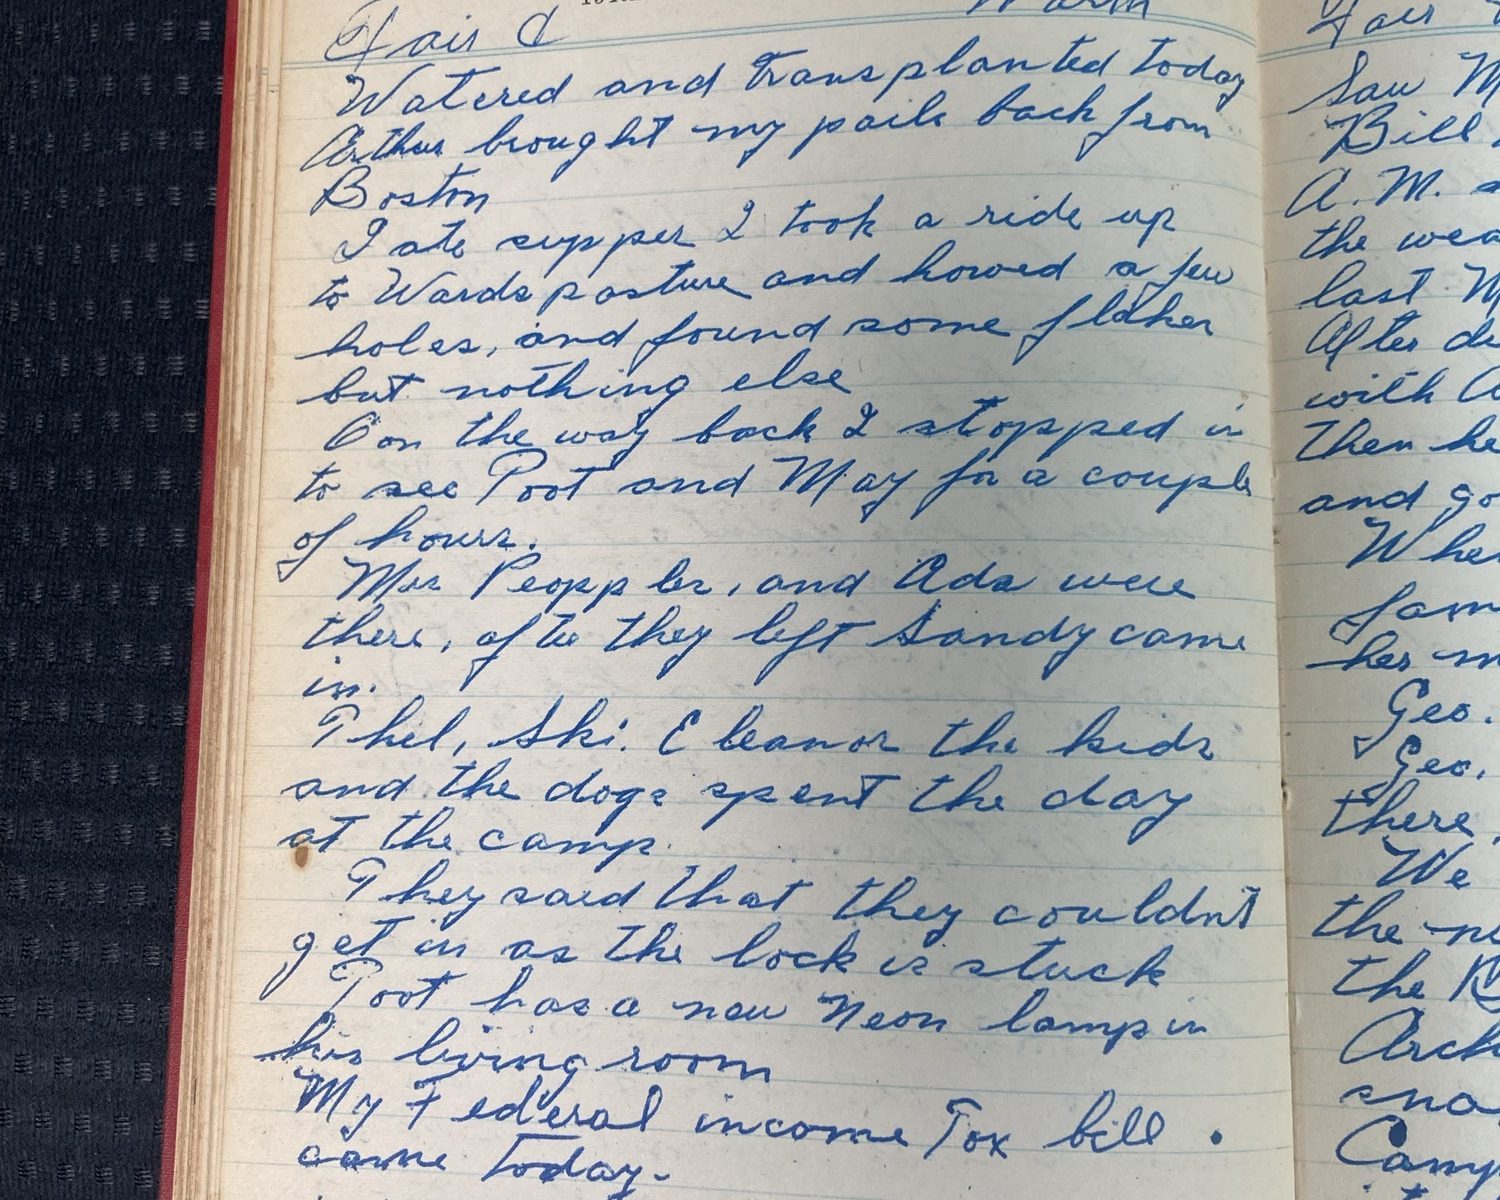 Fair & Warm
Watered and transplanted today
Arthur brought my pails back from
Boston
I ate supper I took a ride up
to Wards pasture and howed a few
holes, and found some
but nothing else
Oon the way back I stopped in
to see Poot and May for a couple
of hours.
Mrs Peoppler, and Ada were
there, after they left Sandy came
in.
Phil, Ski. Eleanor the kids
and the dogs spent the day
at the camp.
They said that they couldn't
get in as the lock is stuck
Poot has a new Neon lamp in
his living room
My Federal income Tax bill.
came Today.
Fair
Saw M
Bill
A. M. s
the wea
last M
After de
with A
Then he
and go
Whe
fam
her m
Geo.
Geo.
there,
We
the ne
the
Arch
sno
Camp